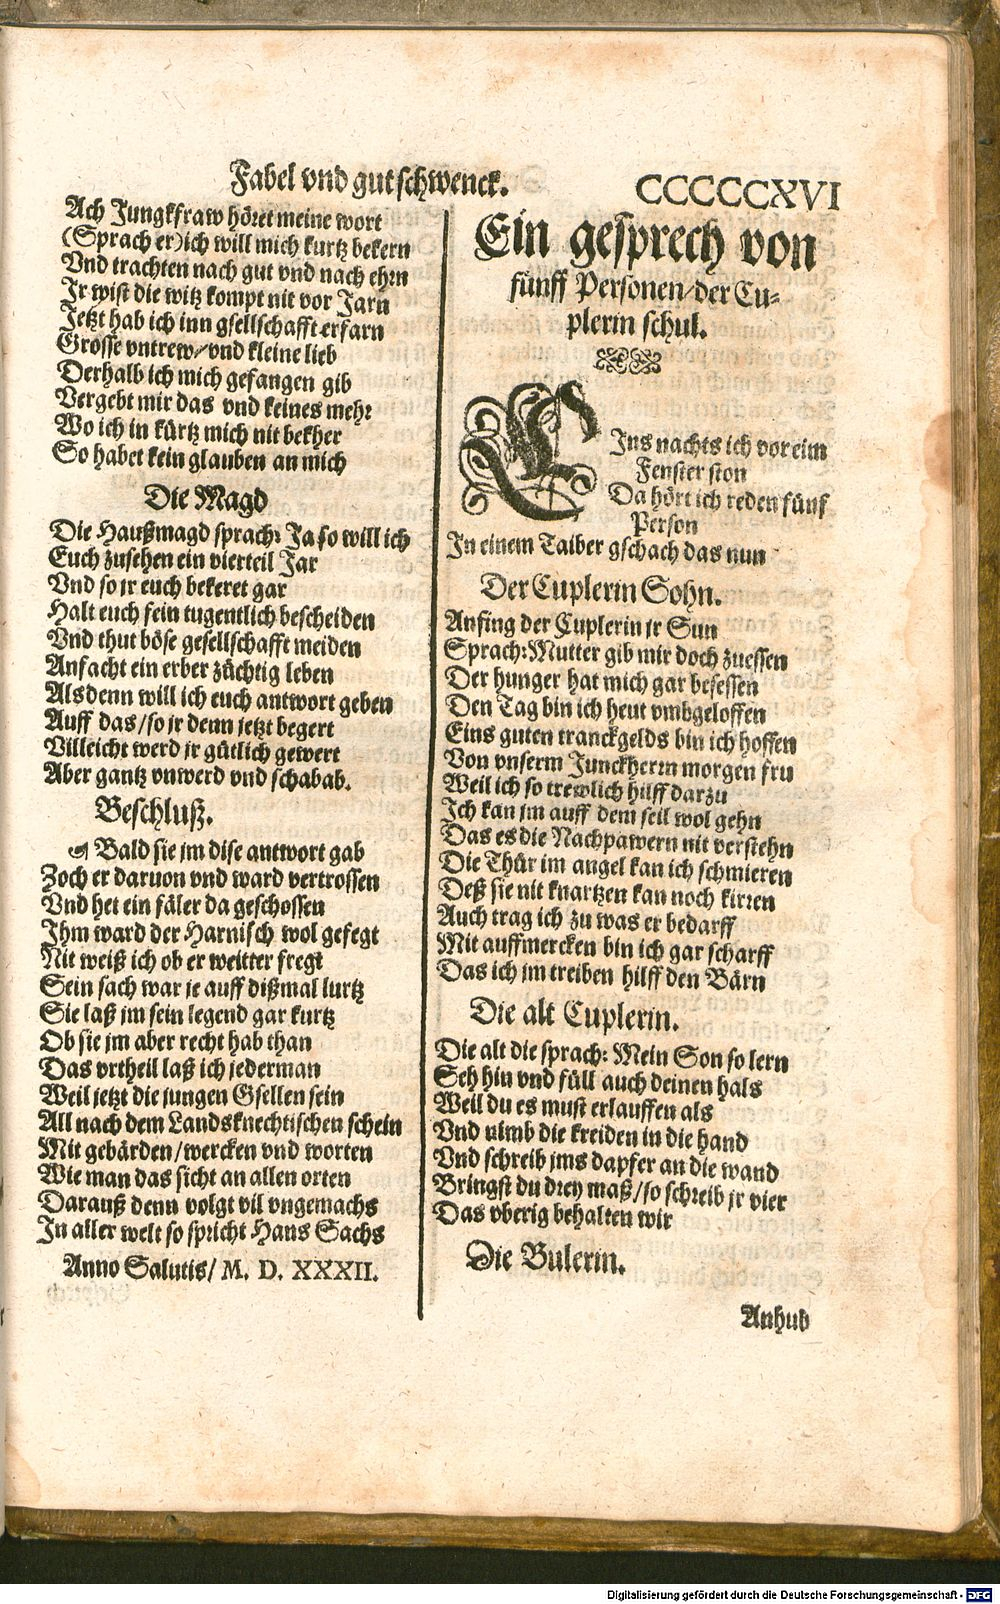 Fabel vnd gut schwenck.
CCCCCCXVI
Ach Jungkfraw höret meine wort
(Sprach er) ich will mich kurtz bekern
Vnd trachten nach gut vnd nach ehrn
Jr wist die witz kompt nit vor Jarn
Jetzt hab ich inn gsellschafft erfarn
Grosse vntrew/ vnd kleine lieb
Derhalb ich mich gefangen gib
Vergebt mir das vnd keines mehr
Wo ich in kürtz mich nit bekher
So habet kein glauben an mich
Die Magd
Die Haußmagd sprach: Ja so will ich
Euch zusehen ein vierteil Jar
Vnd so jr euch bekeret gar
Halt euch fein tugentlich bescheiden
Vnd thut böse gesellschafft meiden
Anfacht ein erber züchtig leben
Alsdenn will ich euch antwort geben
Auff das/ so jr denn jetzt begert
Villeicht werd jr gütlich gewert
Aber gantz vnwerd vnd schabab.
Beschluß.
Bald sie jm dise antwort gab
Zoch er daruon vnd ward vertrossen
Vnd het ein fäler da geschossen
Ihm ward der Harnisch wol gefegt
Nit weiß ich ob er weitter fregt
Sein sach war je auff dißmal lurtz
Sie laß jm sein legend gar kurtz
Ob sie jm aber recht hab than
Das vrtheil laß ich jederman
Weil jetzt die jungen Gsellen sein
All nach dem Landsknechtischen schein
Mit gebärden/ wercken vnd worten
Wie man das sicht an allen orten
Darauß denn volgt vil vngemachs
In aller welt so spricht Hans Sachs
Anno Salutis/ M. D. XXXII.
Ein gesprech von
fünff Personen/ der Cu-
plerin schul.
EIns nachts ich vor eim
Fenster ston
Da hört ich reden fünf
Person
In einem Taiber gschach das nun
Der Cuplerin Sohn.
Anfing der Cuplerin jr Sun
Sprach: Mutter gib mir doch zuessen
Der hunger hat mich gar besessen
Den Tag bin ich heut vmbgeloffen
Eins guten tranckgelds bin ich hoffen
Von vnserm Junckherrn morgen fru
Weil ich so trewlich hilff darzu
Ich kan jm auff dem seil wol gehn
Das es die Nachpawern nit verstehn
Die Thür im angel kan ich schmieren
Deß sie nit knartzen kan noch kirren
Auch trag ich zu was er bedarff
Mit auffmercken bin ich gar scharff
Das ich jm treiben hilff den Bärn
Die alt Cuplerin.
Die alt die sprach: Mein Son so lern
Seh hin vnd füll auch deinen hals
Weil du es must erlauffen als
Vnd nimb die kreiden in die hand
Vnd schreib jms dapfer an die wand
Bringst du drey maß/ so schreib jr vier
Das vberig behalten wir
Die Bulerin.
Anhub
Digitalisierung gefördert durch die Deutsche Forschungsgemeinschaft - DFG